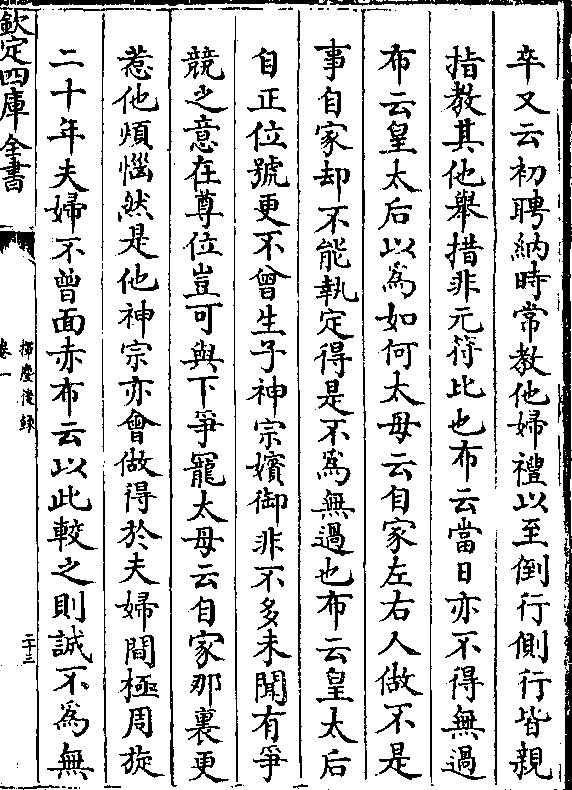 卒又云初聘納時常教他婦禮以至倒行側行皆親
指教其他舉措非元符比也布云當日亦不得無過
布云皇太后以爲如何太母云自家左右人做不是
事自家却不能執定得是不爲無過也布云皇太后
自正位號更不曾生子神宗嬪御非不多未聞有爭
競之意在尊位豈可與下爭寵太母云自家那裏更
惹他煩惱然是他神宗亦會做得於夫婦間極周旋
二十年夫婦不曾面赤布云以此較之則誠不爲無
欽定四庫全書
揮麈後錄
卷一
二十三